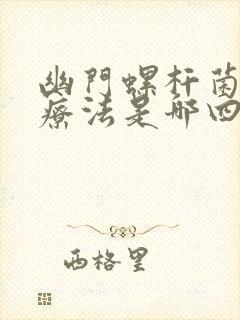 幽門螺杆菌
療法是哪四
西格里